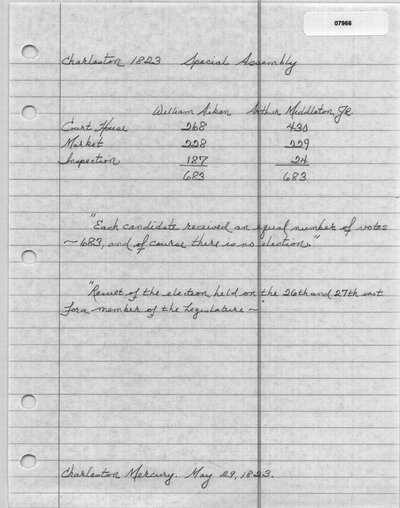 07966
Charleston 1823 Special Assembly
William Aiken Arthur Middleton Jr.
Court House 268 430
Market 228 229
Inspection 187 24
683 683
"Each candidate received an equal number of votes
~ 683, and of course there is no election."
"Result of the election held on the 26th and 27th inst
for a member of the Legislature ~
Charleston Mercury. May 29, 1823.